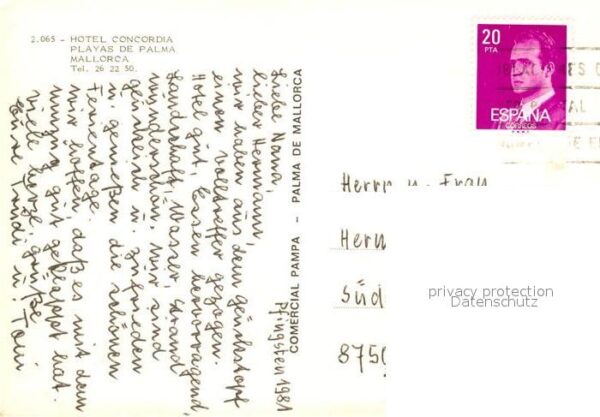 2.065 - HOTEL CONCORDIA
PLAYAS DE PALMA
MALLORCA
Tel. 26 22 50.
Pfingsten 1981
Liebe Nanni,
lieber Hermann,
wir haben aus dem Glückstopf
einen Volltreffer gezogen.
Hotel gut, Essen hervorragend,
Landschaft, Wasser, Strand
wunderschön, wir sind
glücklich u. zufrieden
u. genießen die schönen
Ferientage.
Wir hoffen, daß es mit dem
gut geklappt hat.
Viele herzl. Grüße
Eure Trudi u. Toni
COMERCIAL PAMPA - PALMA DE MALLORCA
20
PTA
ESPAÑA
CORREOS
Herrn u. Frau
Herm
Süd
8750
privacy protection
Datenschutz